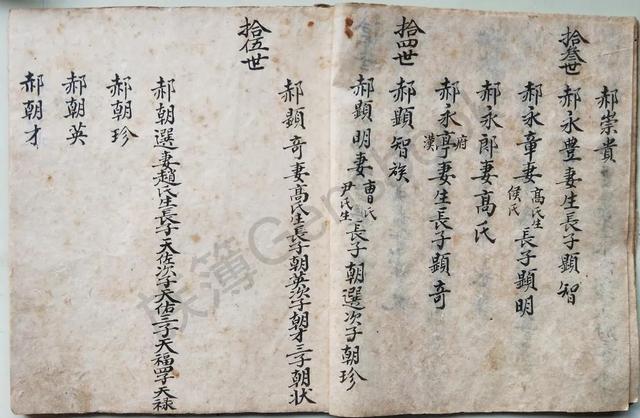 郝崇貴
拾叁世
郝永豊妻生長子顯智
郝永章妻高氏生侯氏長子顯明
郝永郎妻高氏
郝永亭妻生長子顯奇
拾四世
郝顯智族
郝顯明妻曹氏尹氏生長子朝選次子朝珍
郝顯奇妻高氏生長子朝英次子朝才三子朝状
拾伍世
郝朝選妻趙氏生長子天佐次子天佑三子天福四子天禄
郝朝珍
郝朝英
郝朝才
族簿Genshu